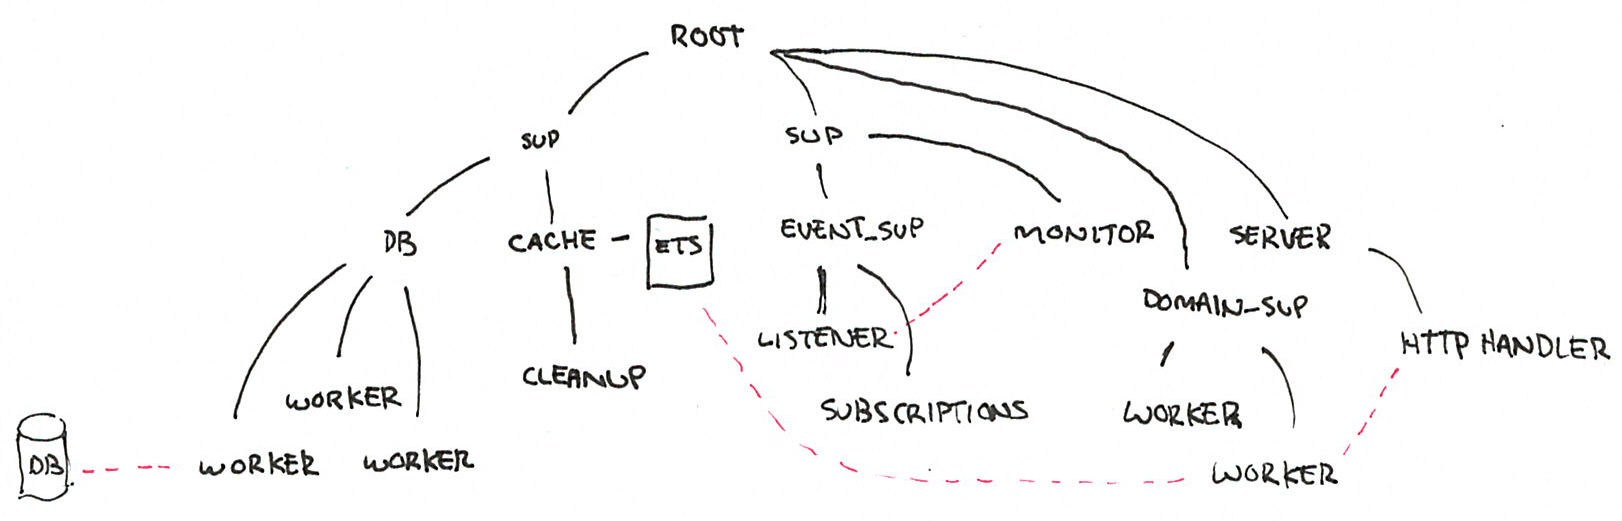 ROOT
SUP
SUP
DB
CACHE
ETS
EVENT_SUP
MONITOR
SERVER
DOMAIN_SUP
LISTENER
HTTP HANDLER
CLEANUP
WORKER
SUBSCRIPTIONS
WORKER
DB
WORKER
WORKER
WORKER